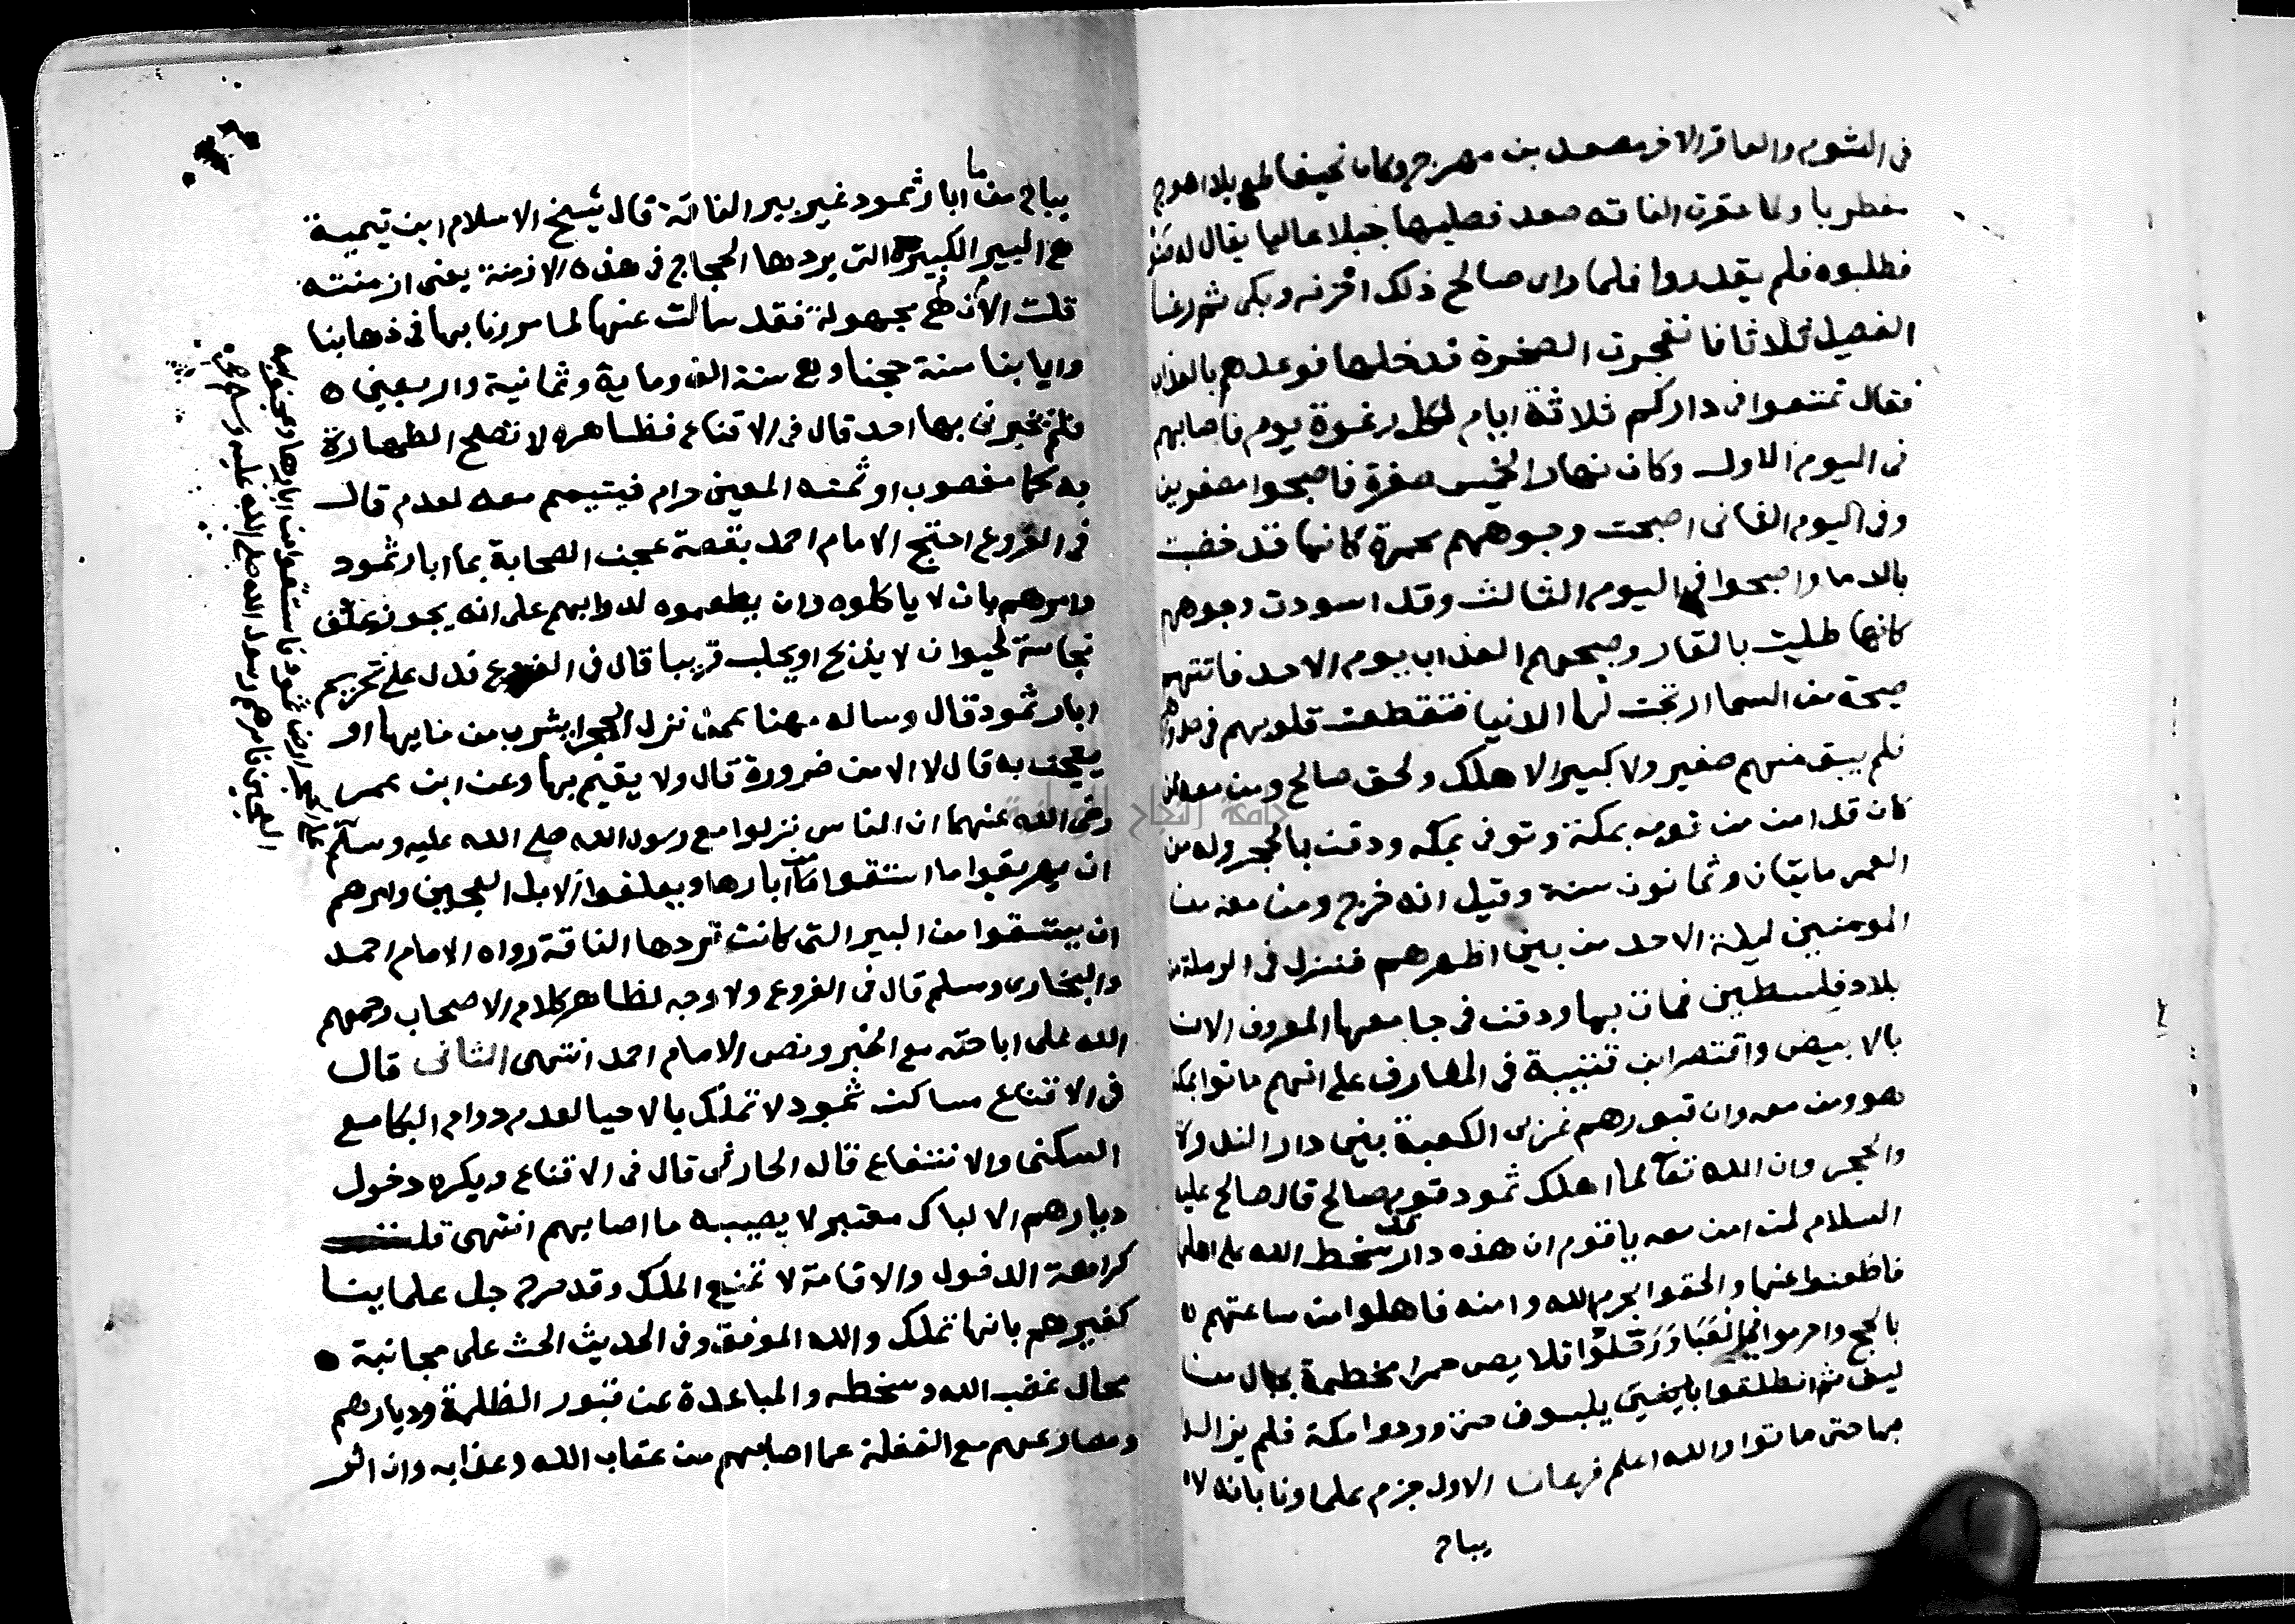 في الشوم والعاقر الاخر مصدع بن مهرج وكان نحيفا طويلا اهوج
مضطربا ولما عقرت الناقه صعد فصيلها جبلا عاليا يقال له
فطلبوه فلم يقدروا فلما راى صالح ذلك احزنه وبكى ثم رغا
الفصيل ثلاثا فانفجرت الصخرة فدخلها فوعدهم بالعذاب
فقال تمتعوا في داركم ثلاثة ايام لكل رغوة يوم فاصابهم
في اليوم الاول وكان نهار الخميس صفرة فاصبحوا مصفرين
وفي اليوم الثاني اصبحت وجوههم محمرة كانها قد خضبت
بالدما واصبحوا في اليوم الثالث وقد اسودت وجوههم
كانها طليت بالقار وصبحهم العذاب يوم الاحد فاتتهم
صيحة من السما ارتجت لها الدنيا فتقطعت قلوبهم في صدورهم
فلم يبق منهم صغير ولا كبير الا هلك ولحق صالح ومن معه
كان قد امن من قومه بمكة وتوفي بمكه ودفن بالحجر وله من
العمر مايتان وثمانون سنة وقيل انه خرج ومن معه من
المومنين ليلة الاحد من بين اظهرهم فنزل في الرملة من
بلاد فلسطين فمات بها ودفن في جامعها المعروف الان
بالابيض واقتصر ابن قتيبة في المعارف على انهم ماتوا بمكة
هو ومن معه وان قبورهم غربي الكعبة بين دار الندوة
والحجر وان الله تعالى لما اهلك ثمود قوم صالح قال صالح عليه
السلام لمن امن معه يا قوم ان هذه دار سخط الله على اهلها
فاظعنوا عنها والحقوا بحرم الله وامنه فاهلوا من ساعتهم
بالحج واحرموا في العبا وارتحلوا قلايص حمرا مخطمة بحبال من
ليف ثم انطلقوا يلبون حتى وردوا مكة فلم يزالوا
بها حتى ماتوا والله اعلم فرعان الاول جزم علماونا بانه لا
يباح
يباح من ما ابار ثمود غير بير الناقة قال شيخ الاسلام ابن تيمية
هي البير الكبيرة التي يردها الحجاج في هذه الازمنة يعني ازمنته
قلت الان هي مجهولة فقد سالت عنها لما مررنا بها في ذهابنا
وايابنا سنة حججنا وهي سنة الف وماية وثمانية واربعين
فلم يخبرني بها احد قال في الاقناع فظاهره لا تصلح الطهارة
به كما مغصوب او ثمنه المعين حرام فيتيمم معه لعدم قال
في الفروع احتج الامام احمد بقصة عجن الصحابة بما ابار ثمود
وامرهم بان لا ياكلوه وان يطعموه لدوابهم على انه يجوز علف
نجاسة لحيوان لا يذبح او يحلب قريبا قال في الفروع فدل على تحريم
ابار ثمود قال وساله مهنا عمن نزل الحجر ايشرب من مايها او
يعجن به قال لا الا من ضرورة قال ولا يقيم بها وعن ابن عمر
رضي الله عنهما ان الناس نزلوا مع رسول الله صلى الله عليه وسلم
على الحجر ارض ثمود فاستقوا من ابارها وعجنوا به
العجين فامرهم رسول الله صلى الله عليه وسلم
ان يهريقوا ما استقوا من آبارها ويعلفوا الابل العجين وامرهم
ان يستقوا من البير التي كانت تردها الناقة رواه الامام احمد
والبخاري ومسلم قال في الفروع ولا وجه لظاهر كلام الاصحاب رحمهم
الله على اباحته مع الخبر ونص الامام احمد انتهى الثاني قال
في الاقناع مساكن ثمود لا تملك بالاحيا لعدم دوام البكا مع
السكنى والانتفاع قاله الحارثي قال في الاقناع ويكره دخول
ديارهم الا لباك معتبر لا يصيبه ما اصابهم انتهى قلت
كراهة الدخول والاقامة لا تمنع الملك وقد صرح جل علماينا
كغيرهم بانها تملك والله الموفق وفي الحديث الحث على مجانبة
محال غضب الله وسخطه والمباعدة عن قبور الظلمة وديارهم
ومصارعهم مع الغفلة عما اصابهم من عقاب الله وعذابه وان اثر
جامعة النجاح الوطنية